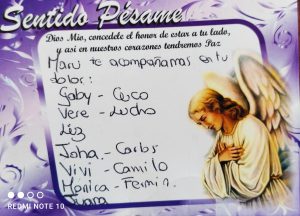 Sentido Pésame
Dios Mio, concedele el honor de estar a tu lado,
y asi en nuestros corazones tendremos Paz
Maru te acompañamos en tu
dolor:
Gaby - Cuco
Vere - Lucho
Liz
Joha - Carlos
Vivi - Camilo
Mónica - Fermin.
Juana
REDMI NOTE 10